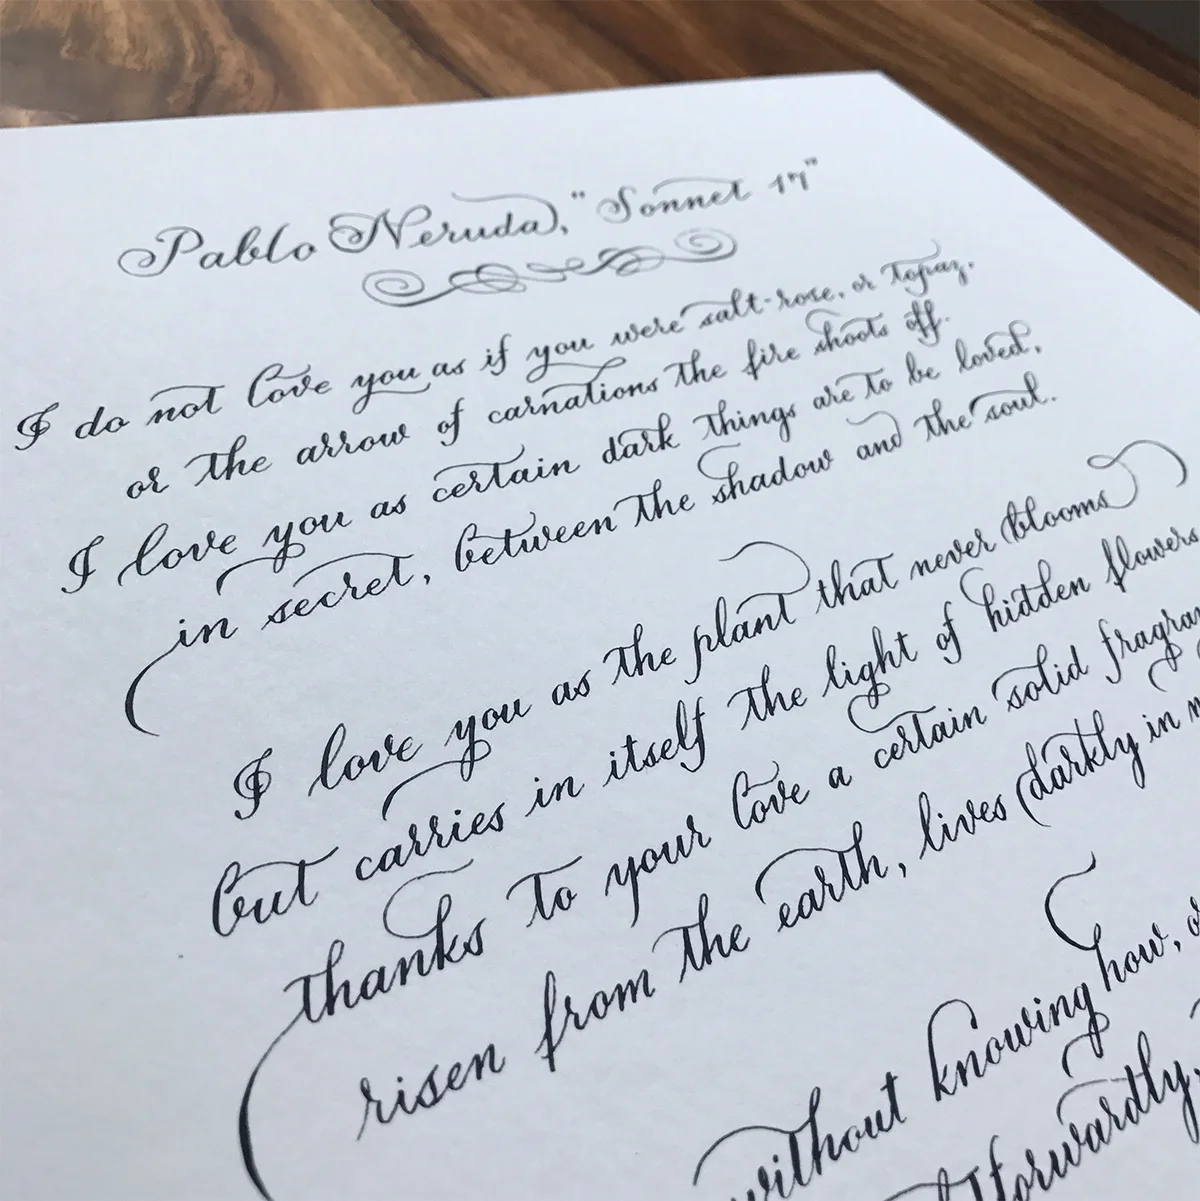 Pablo Neruda, "Sonnet 17"
I do not love you as if you were salt-rose, or topaz,
or the arrow of carnations the fire shoots off.
I love you as certain dark things are to be loved,
in secret, between the shadow and the soul.
I love you as the plant that never blooms
but carries in itself the light of hidden flowers
thanks to your love a certain solid
risen from the earth, lives darkly in
without knowing how,